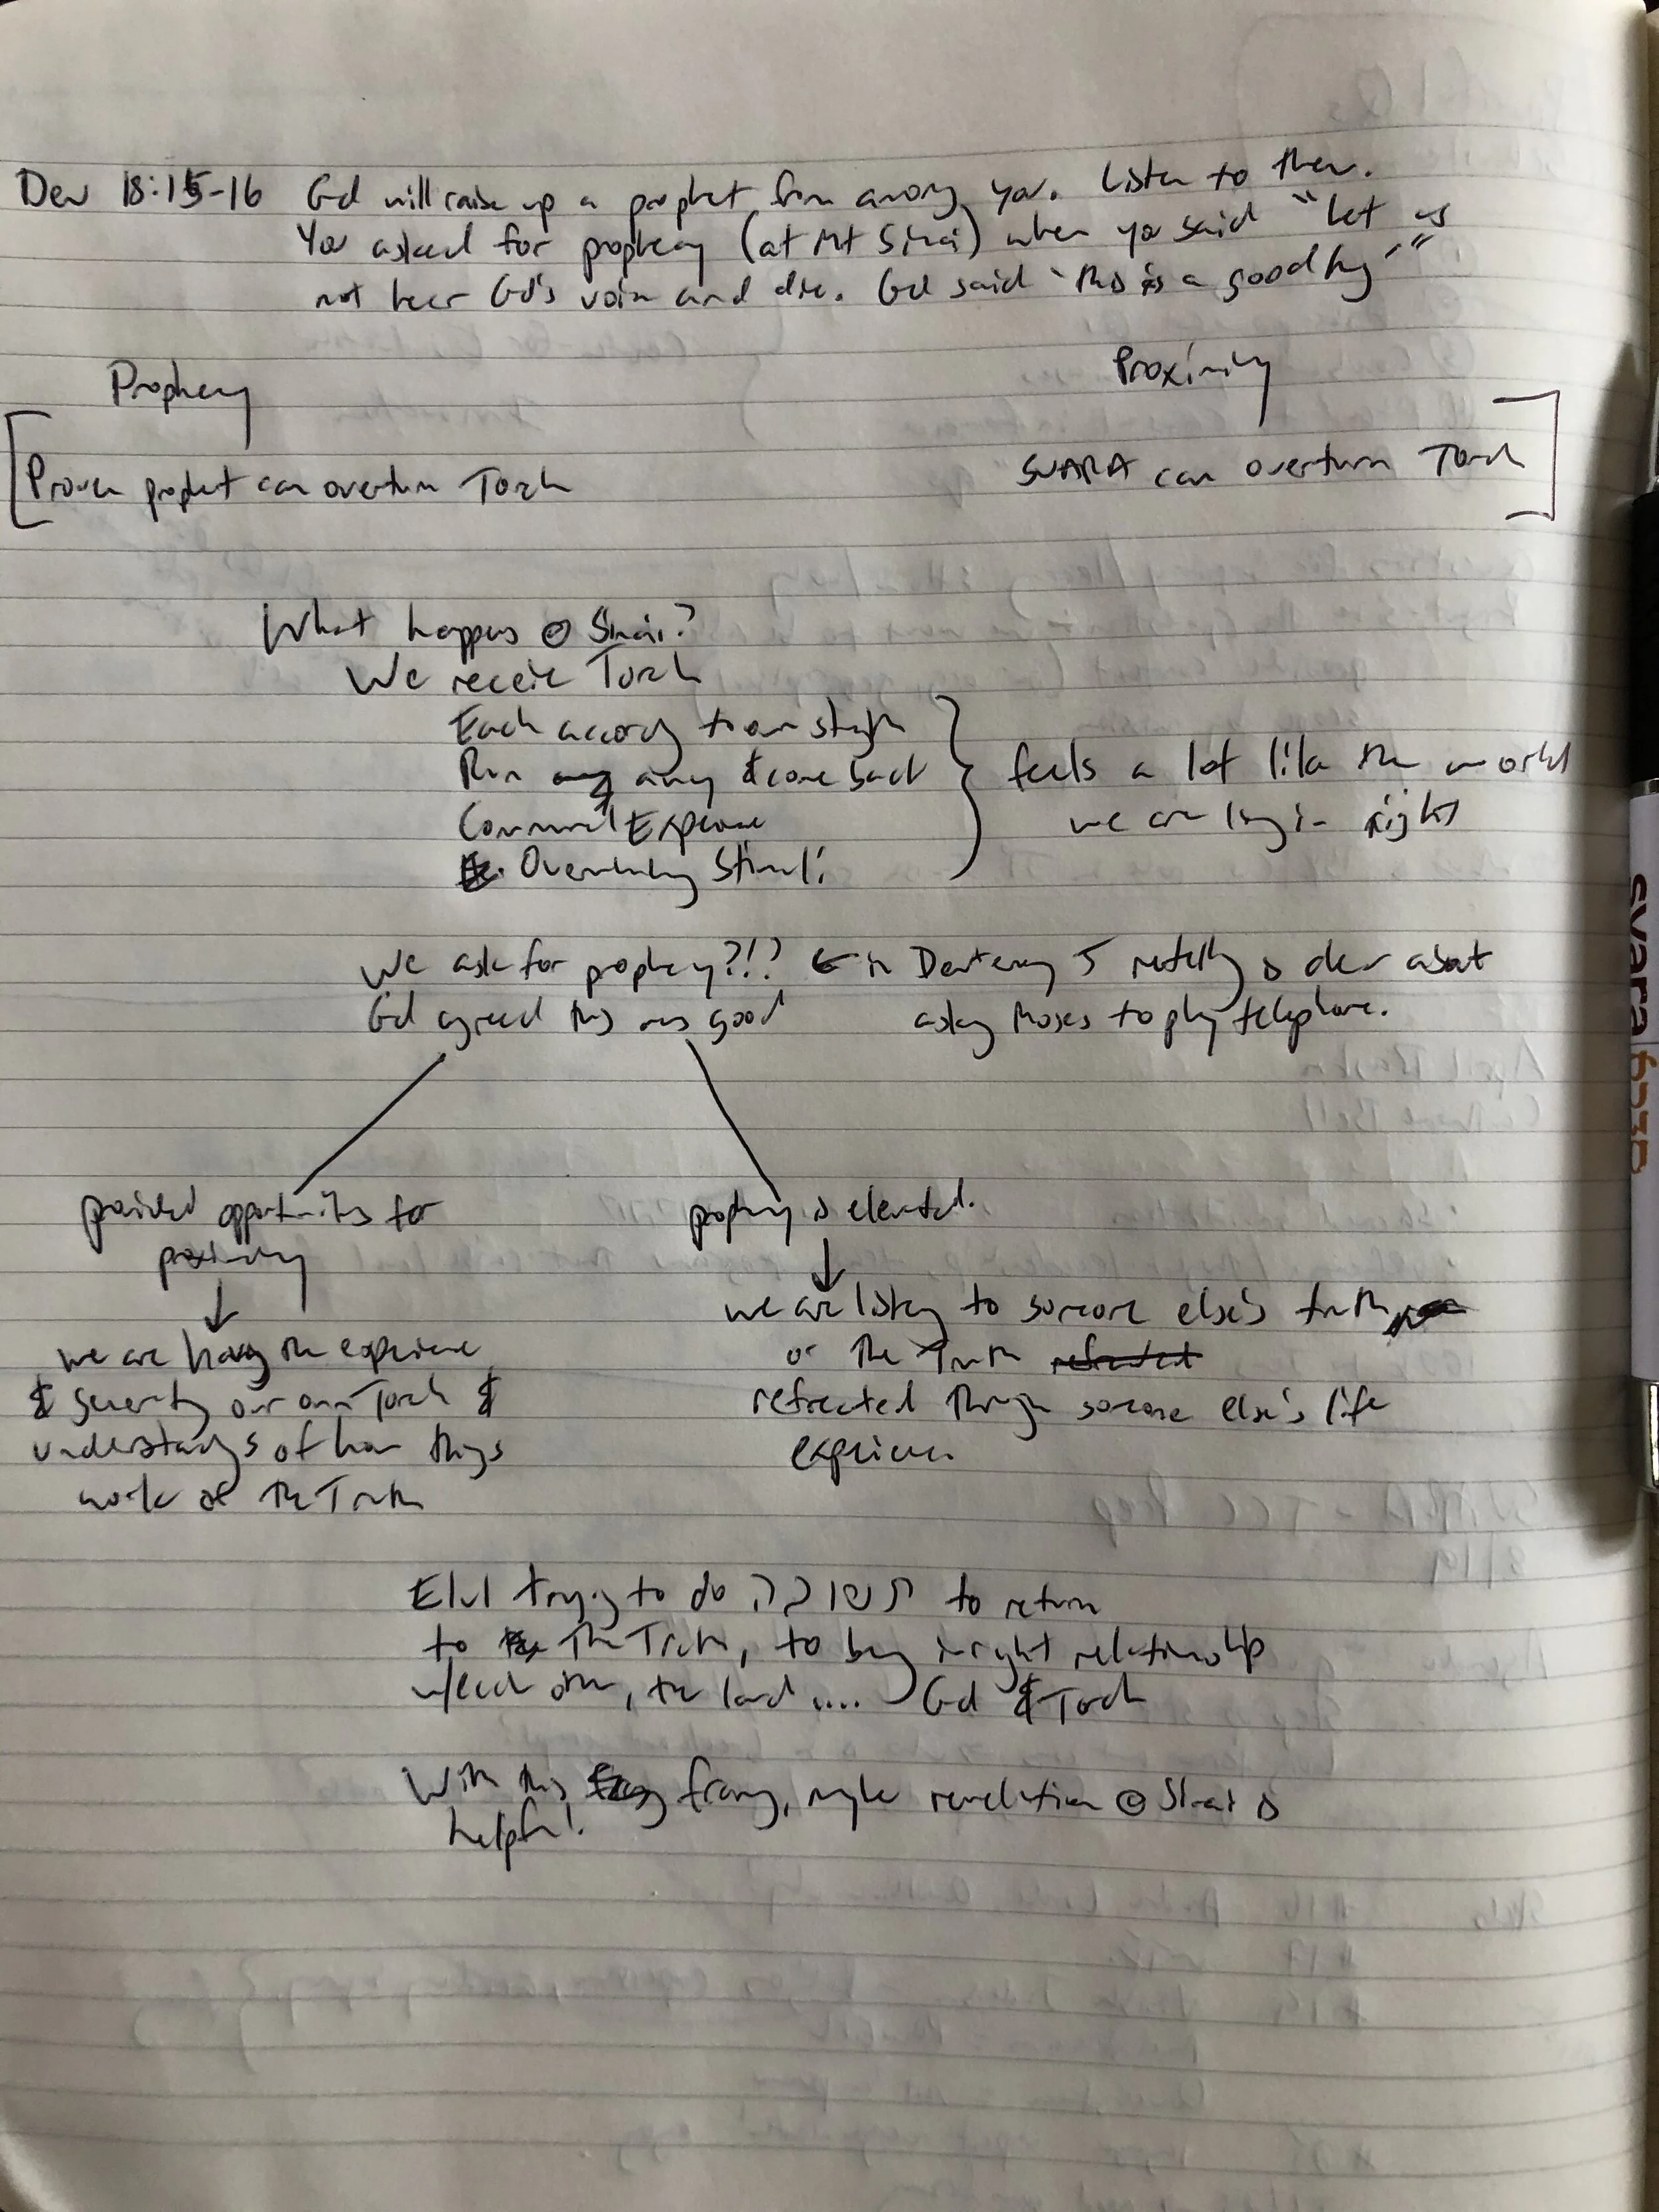 Deu 18:15-16 Gd will raise up a prophet from among you. Listen to them.
You asked for prophecy (at Mt Sinai) when you said "let us
not hear Gd's voice and die. Gd said 'this is a good thing'"
Prophecy
Proximity
[Proven prophet can overturn Torah
SVARA can overturn Torah]
What happens @ Sinai?
We receive Torah
Each according to our strength
Run away & come back
Communal Experience
Overwhelming Stimuli
feels a lot like the world
we are living in right
We ask for prophecy?!? ← in Deuteronomy 5 retelling is clear about
Gd agreed this was good
asking Moses to play telephone.
provided opportunities for
proximity
↓
we are having the experience
& generating our own Torah &
understandings of how things
work as The Truth
prophecy is elevated.
↓
we are listening to someone else's truth
or The Truth refracted
refracted through someone else's life
experience.
Elul trying to do תשובה to return
to The Truth, to being in right relationship
w/each other, the land .... Gd & Torah
With this framing, maybe revelation @ Sinai is
helpful.
svara סברא